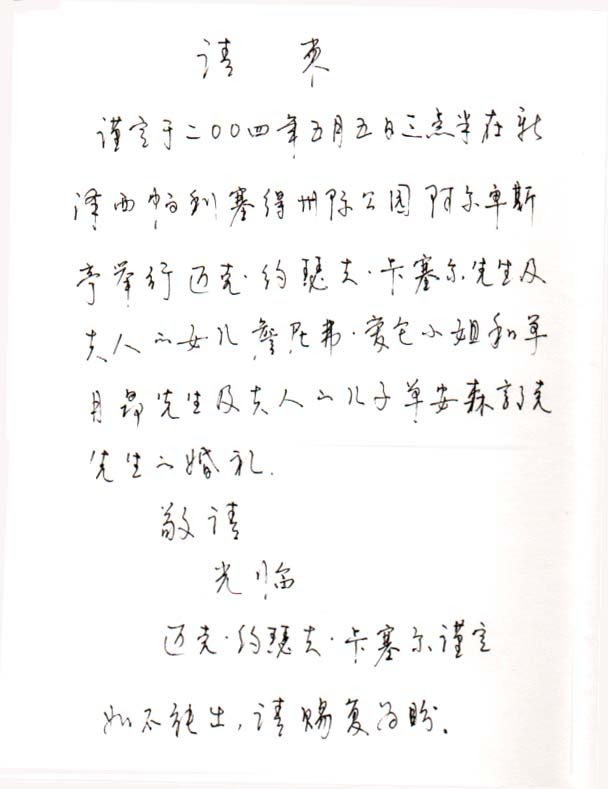 请柬
谨定于二〇〇四年五月五日三点半在新
泽西帕利塞得州际公园阿尔卑斯
亭举行迈克·约瑟夫·卡塞尔先生及
夫人的女儿詹尼弗·爱仑小姐和单
月昂先生及夫人的儿子单安森
先生的婚礼.
敬请
光临
迈克·约瑟夫·卡塞尔谨定
如不能出,请赐复为盼.